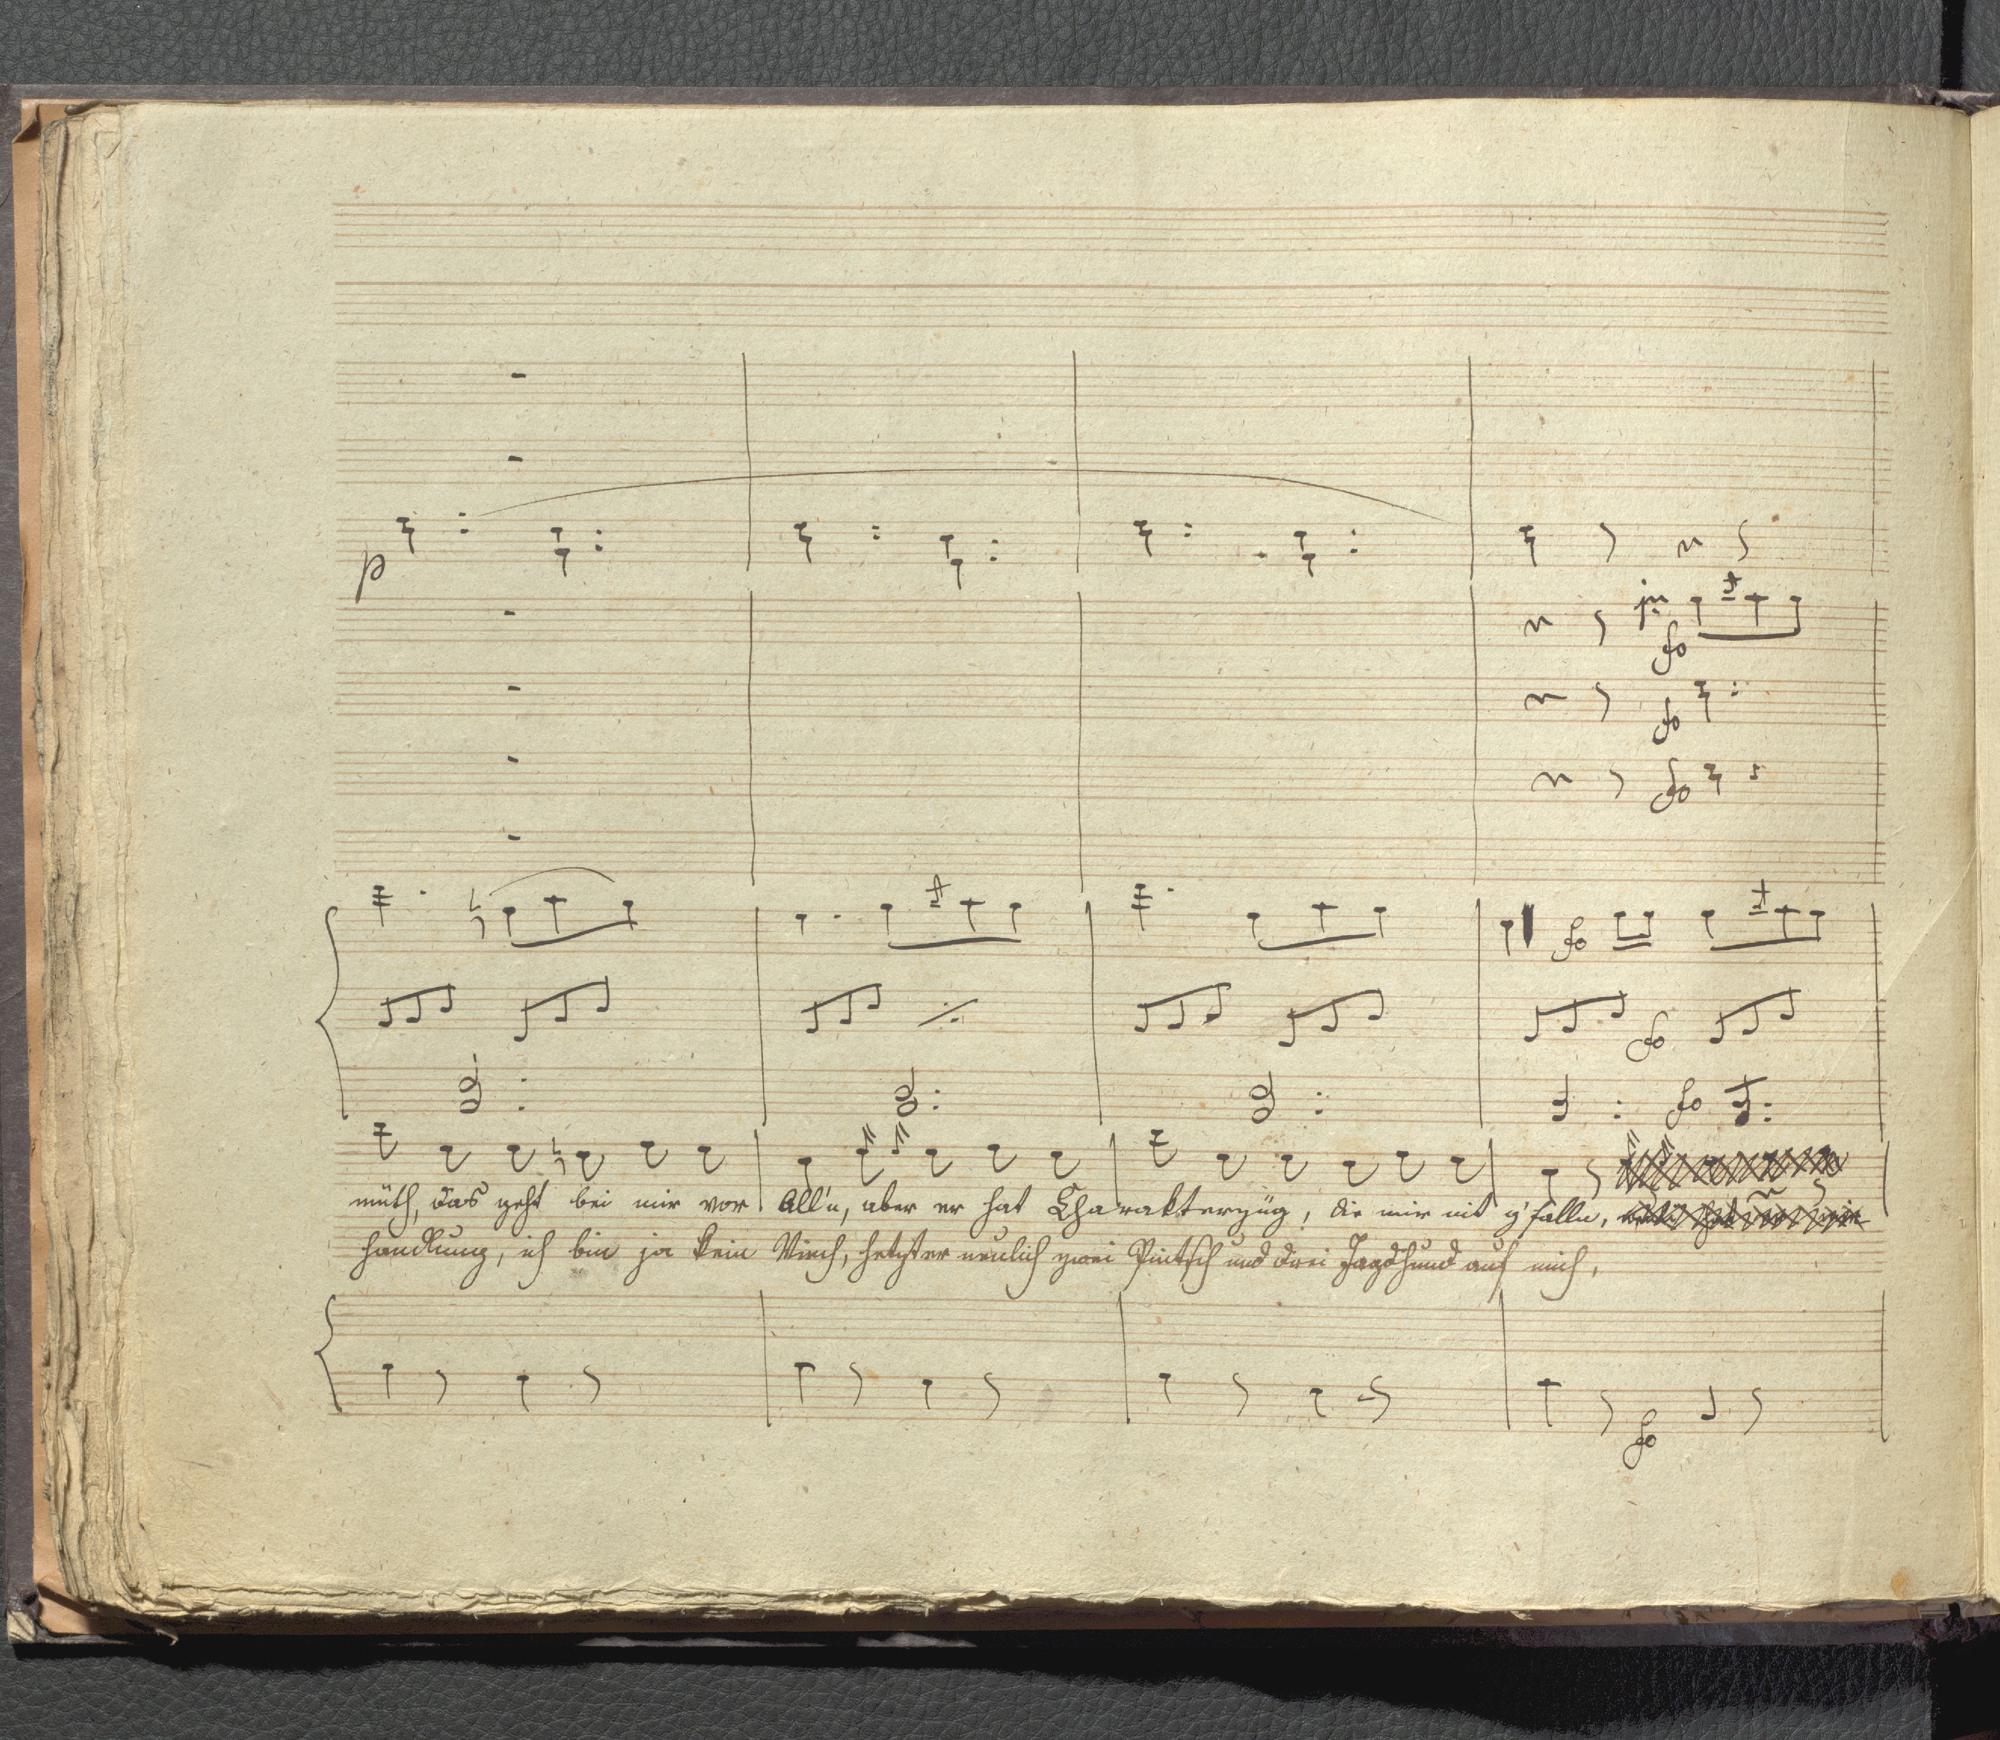 p
fo
fo
fo
fo
fo
fo
müth, das geht bei mir vor All'n, aber er hat Charakterzüg, die mir nit g'falln,
handlung, ich bin ja kein Viech, hetzt er neulich zwei Pintsch und drei Jagdhund auf mich,
fo